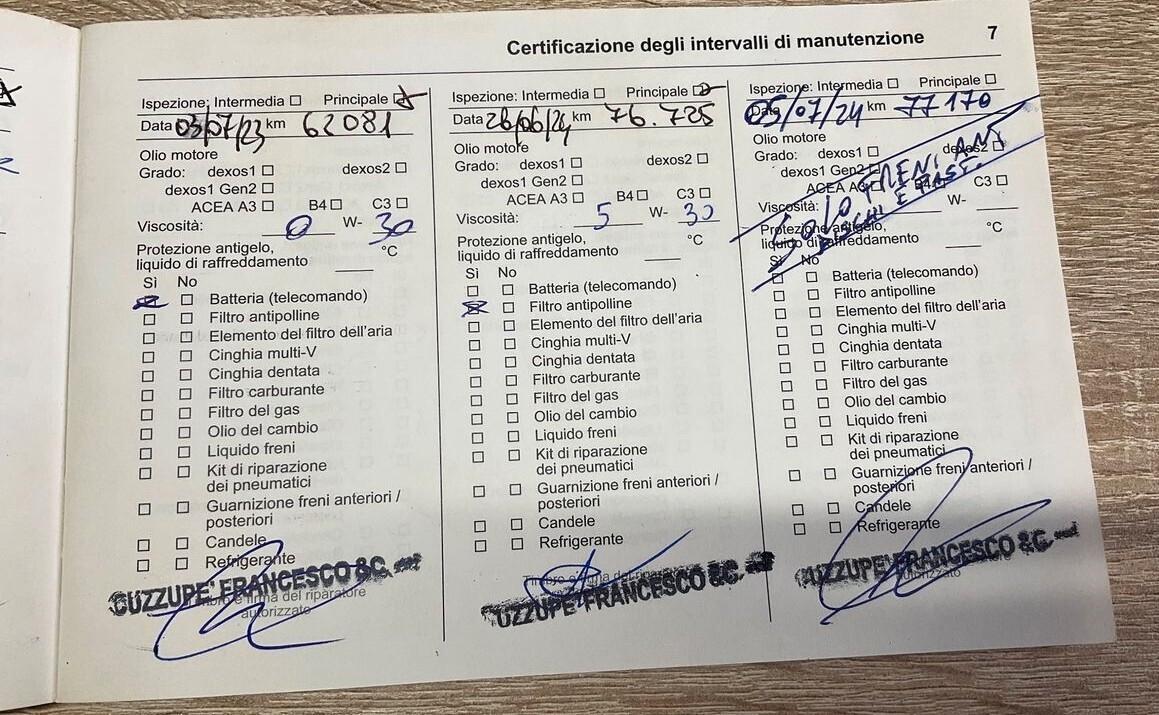 Certificazione degli intervalli di manutenzione 7
Ispezione: Intermedia ☐ Principale ☒
Data 03/07/23 km 62081
Olio motore
Grado: dexos1 ☐ dexos2 ☐
dexos1 Gen2 ☐
ACEA A3 ☐ B4 ☐ C3 ☐
Viscosità: 0 W- 30
Protezione antigelo,
liquido di raffreddamento °C
Sì No
☒ ☐ Batteria (telecomando)
☐ ☐ Filtro antipolline
☐ ☐ Elemento del filtro dell'aria
☐ ☐ Cinghia multi-V
☐ ☐ Cinghia dentata
☐ ☐ Filtro carburante
☐ ☐ Filtro del gas
☐ ☐ Olio del cambio
☐ ☐ Liquido freni
☐ ☐ Kit di riparazione
dei pneumatici
☐ ☐ Guarnizione freni anteriori /
posteriori
☐ ☐ Candele
☐ ☐ Refrigerante
CUZZUPE' FRANCESCO & C.
Timbro e firma del riparatore
autorizzato
Ispezione: Intermedia ☐ Principale ☒
Data 26/06/24 km 76.725
Olio motore
Grado: dexos1 ☐ dexos2 ☐
dexos1 Gen2 ☐
ACEA A3 ☐ B4 ☐ C3 ☐
Viscosità: 5 W- 30
Protezione antigelo,
liquido di raffreddamento °C
Sì No
☐ ☐ Batteria (telecomando)
☒ ☐ Filtro antipolline
☐ ☐ Elemento del filtro dell'aria
☐ ☐ Cinghia multi-V
☐ ☐ Cinghia dentata
☐ ☐ Filtro carburante
☐ ☐ Filtro del gas
☐ ☐ Olio del cambio
☐ ☐ Liquido freni
☐ ☐ Kit di riparazione
dei pneumatici
☐ ☐ Guarnizione freni anteriori /
posteriori
☐ ☐ Candele
☐ ☐ Refrigerante
Timbro e firma del
CUZZUPE' FRANCESCO & C.
Ispezione: Intermedia ☐ Principale ☐
Data 05/07/24 km 77170
Olio motore
Grado: dexos1 ☐ dexos2 ☐
dexos1 Gen2 ☐
ACEA A3 ☐ B4 ☐ C3 ☐
Viscosità: W-
Protezione antigelo,
liquido di raffreddamento °C
SOLO FRENI ANT
DISCHI E PAST.
Sì No
☐ ☐ Batteria (telecomando)
☐ ☐ Filtro antipolline
☐ ☐ Elemento del filtro dell'aria
☐ ☐ Cinghia multi-V
☐ ☐ Cinghia dentata
☐ ☐ Filtro carburante
☐ ☐ Filtro del gas
☐ ☐ Olio del cambio
☐ ☐ Liquido freni
☐ ☐ Kit di riparazione
dei pneumatici
☐ ☐ Guarnizione freni anteriori /
posteriori
☐ ☐ Candele
☐ ☐ Refrigerante
CUZZUPE' FRANCESCO & C.
autorizzato